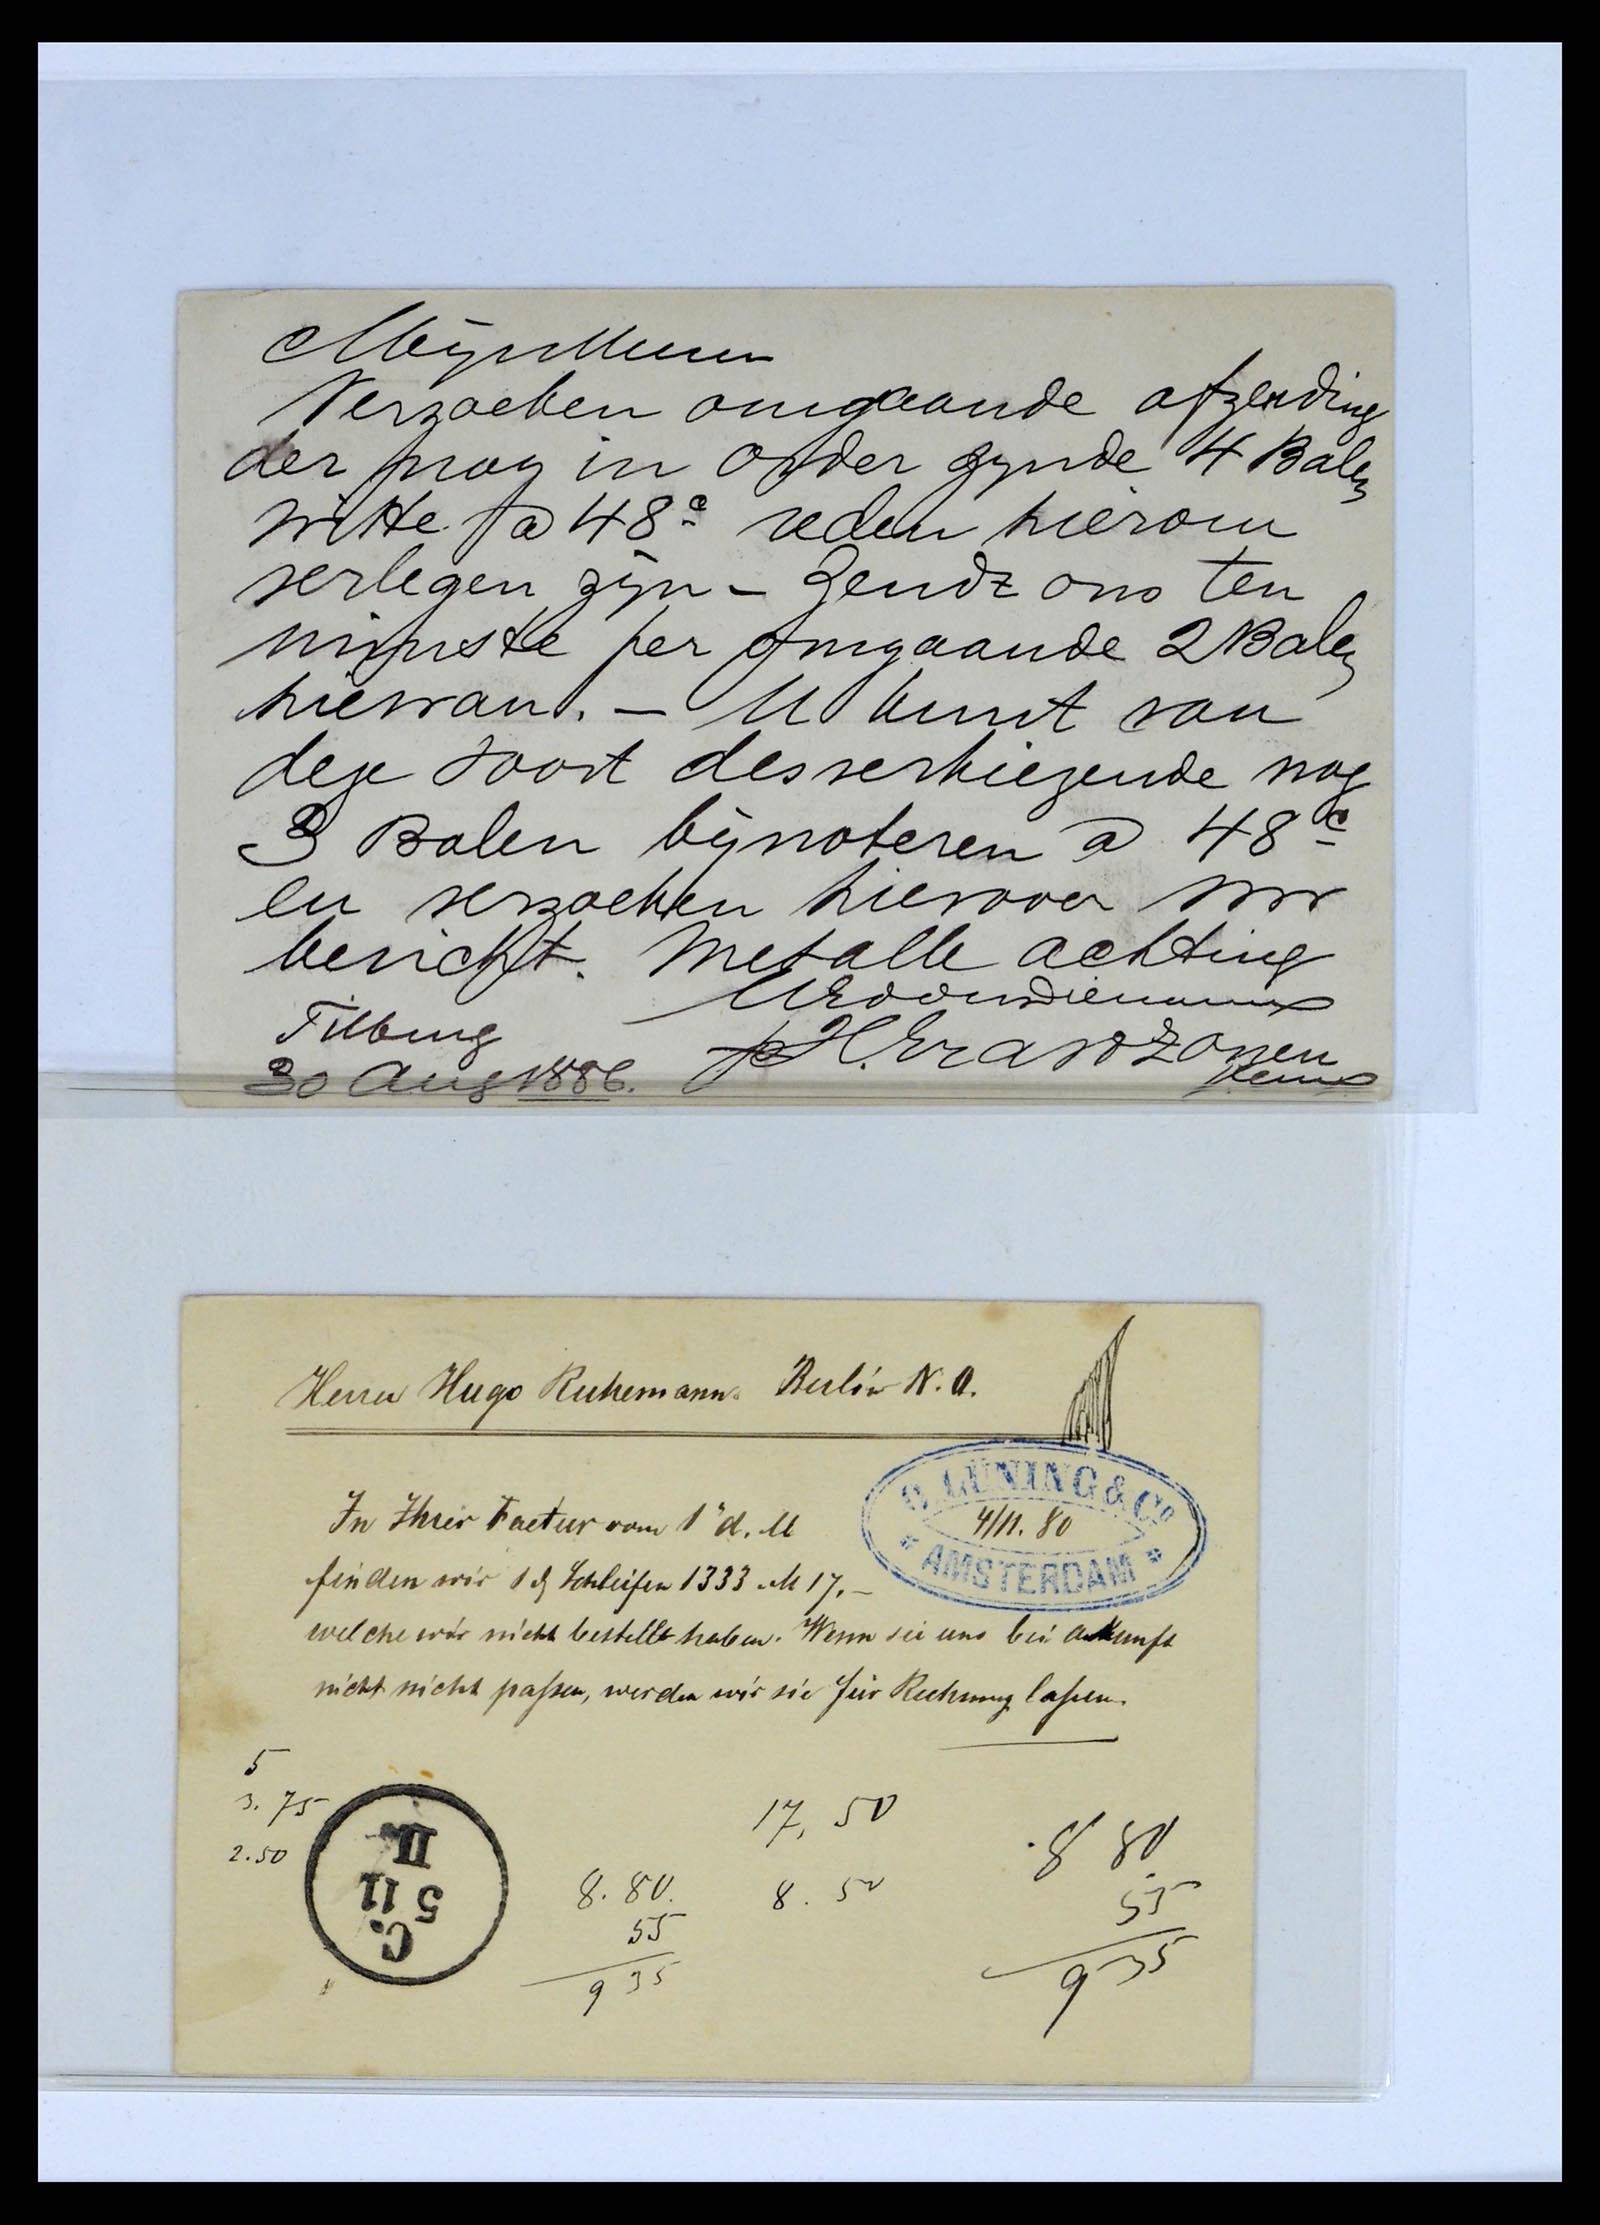 Mijnheer
Verzoeken omgaande afzending
der nog in order zynde 4 Balen
witte a 48c reden hierom
verlegen zijn – Zendt ons ten
minste per omgaande 2 Balen
hiervan. – U kunt van
deze soort desverkiezende nog
3 Balen bijnoteren a 48c
en verzoeken hierover uw
bericht. Met alle achting
UEd
Tilburg
30 Aug 1886.
Zonen
Herrn Hugo Ruhemann. Berlin N. O.
C. LÜNING & Co
4/11. 80
* AMSTERDAM *
In Ihrer Factur vom 1" d. M
finden wir 1 Schleifen 1333 M 17,–
welche wir nicht bestellt haben. Wenn sie uns bei Ankunft
nicht nicht paßen, werden wir sie für Rechnung laßen.
5
3.75
2.50
C.
5 11
II
8.80.
55
9 35
17,50
8.50
8 80
55
9 35